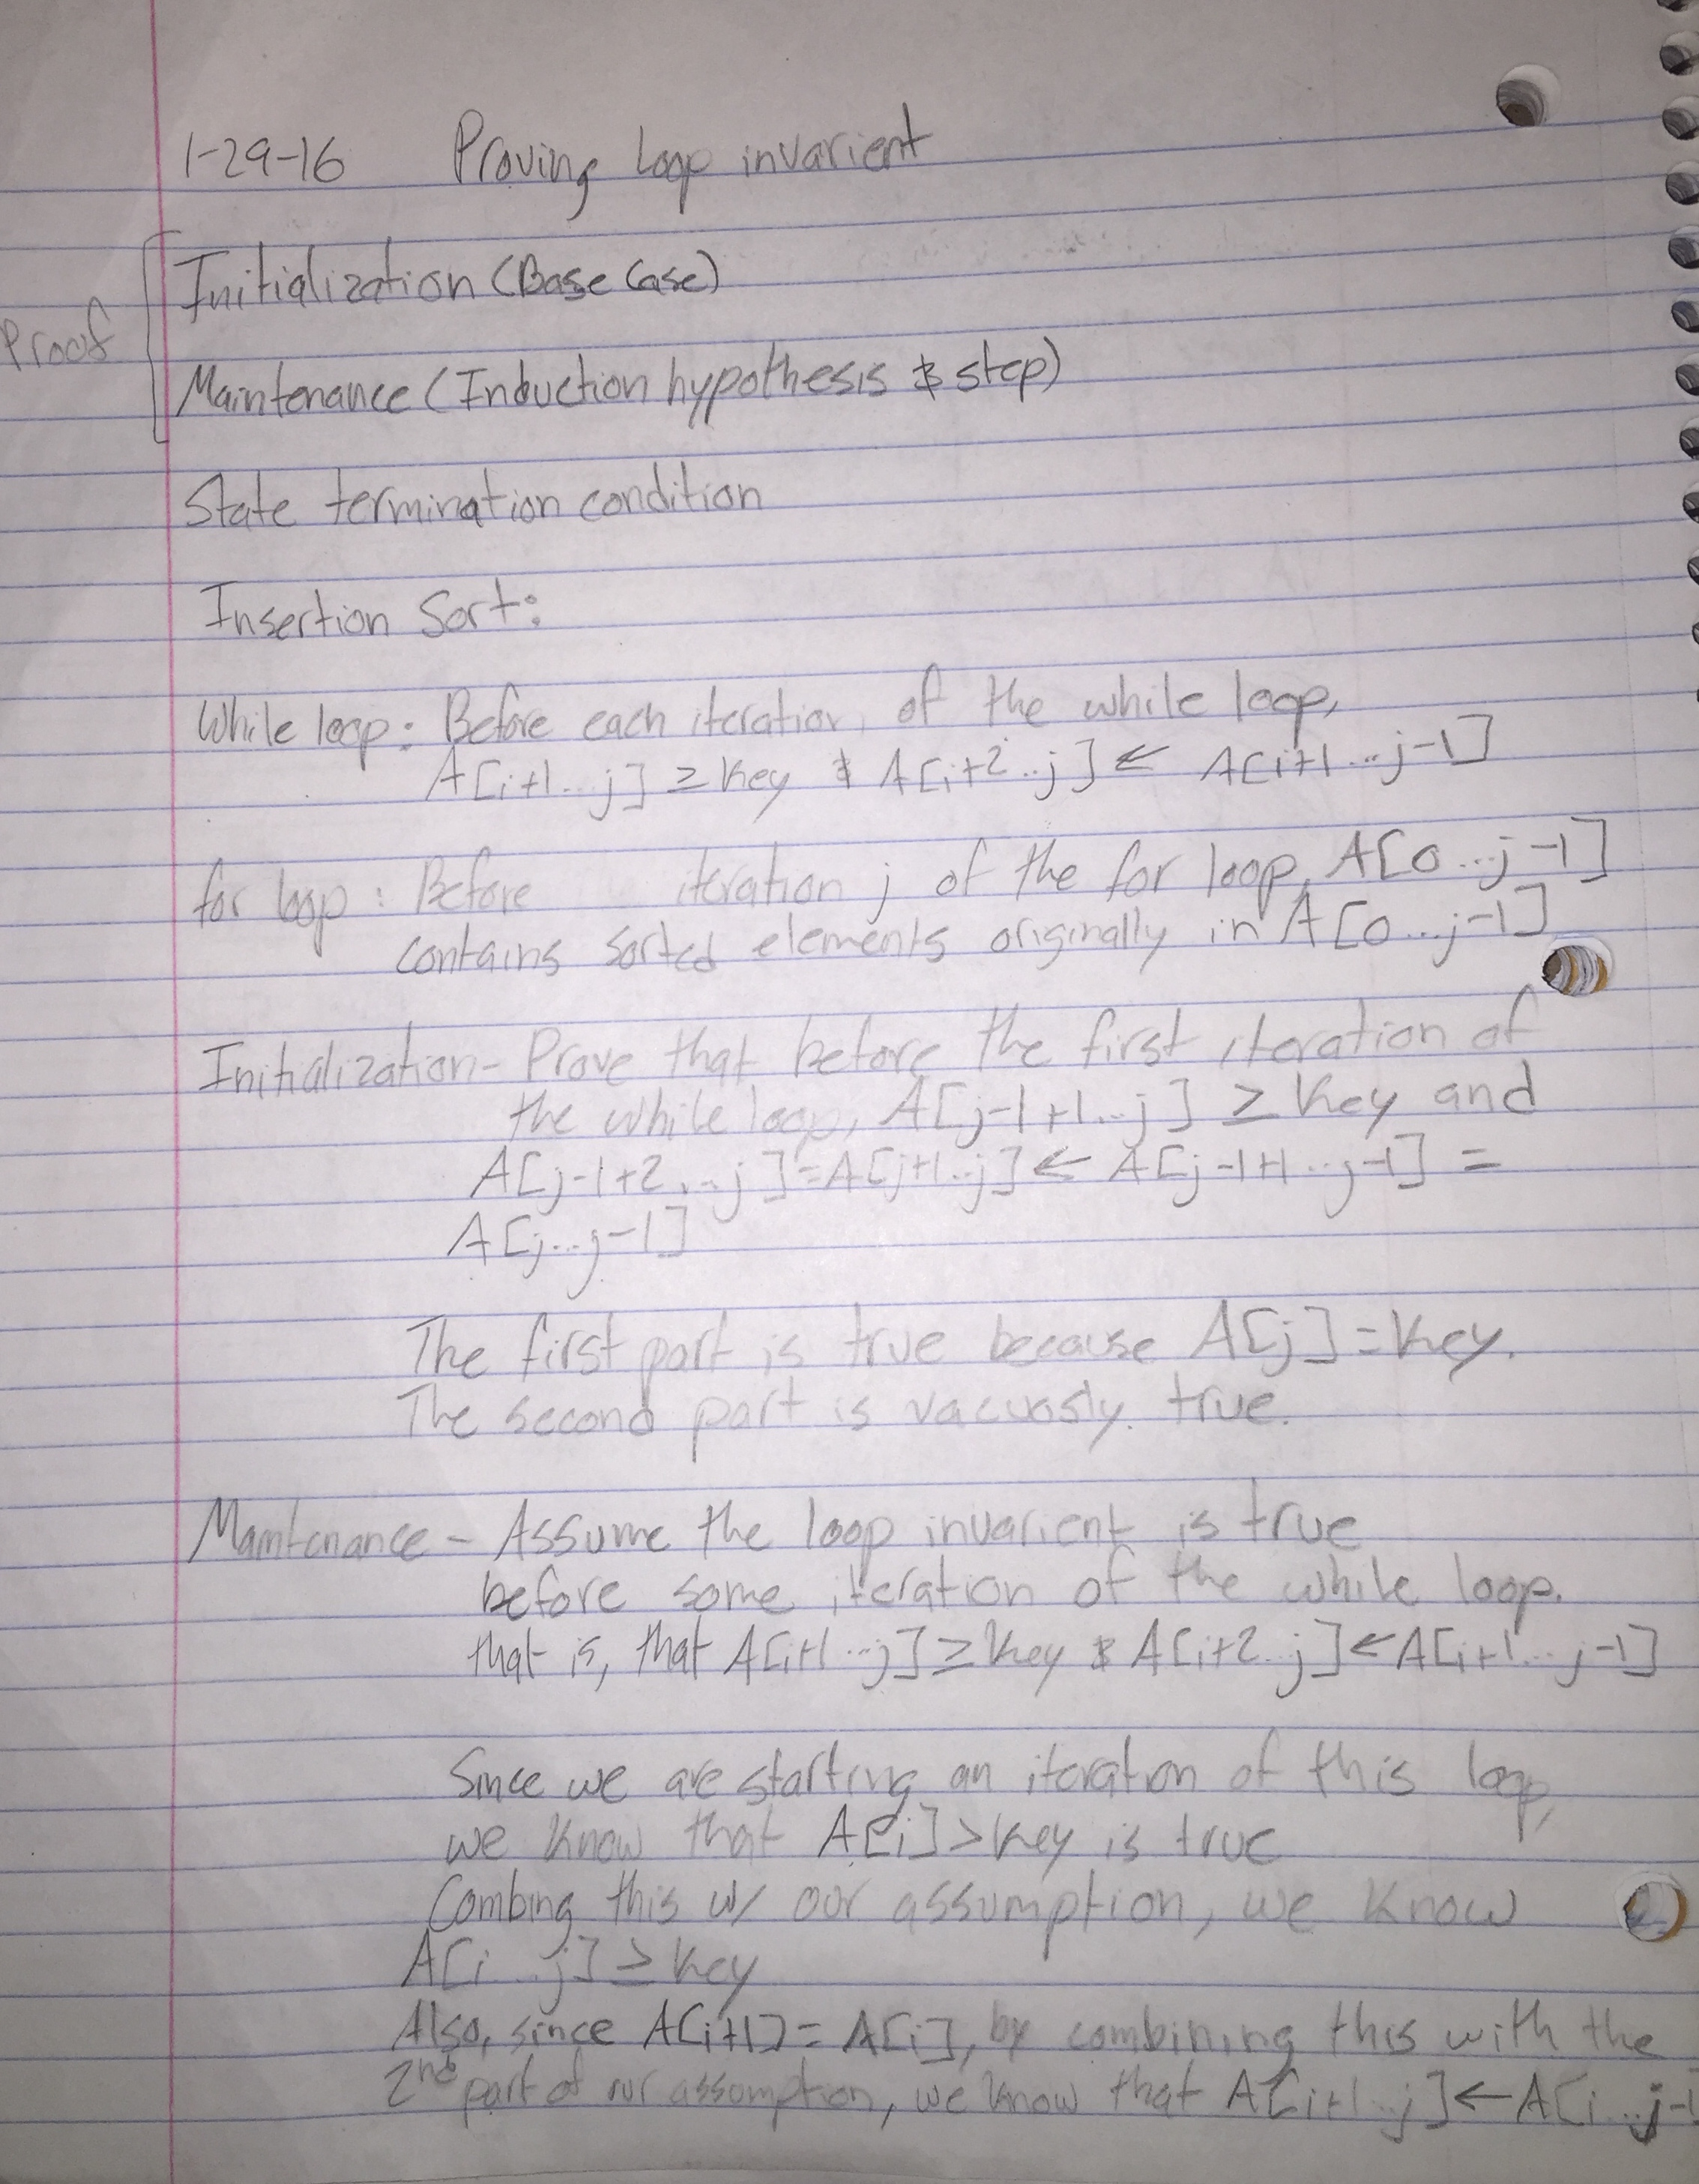 1-29-16 Proving Loop invarient
Proof
Initialization (Base Case)
Maintenance (Induction hypothesis & step)
State termination condition
Insertion Sort:
While loop: Before each iteration, of the while loop,
A[i+1...j] ≥ key & A[i+2..j] ← A[i+1...j-1]
for loop: Before iteration j of the for loop, A[0...j-1]
contains sorted elements originally in A[0...j-1]
Initialization- Prove that before the first iteration of
the while loop, A[j-1+1...j] ≥ key and
A[j-1+2...j]=A[j+1..j] ← A[j-1+1...j-1] =
A[j...j-1]
The first part is true because A[j]=key.
The second part is vacuosly. true.
Maintenance - Assume the loop invarient is true
before some iteration of the while loop.
that is, that A[i+1...j]≥key & A[i+2..j]←A[i+1...j-1]
Since we are starting an iteration of this loop,
we know that A[i]>key is true
Combing this w/ our assumption, we know
A[i...j]≥key
Also, since A[i+1]= A[i], by combining this with the
2nd part of our assumption, we know that A[i+1..j]←A[i...j-1